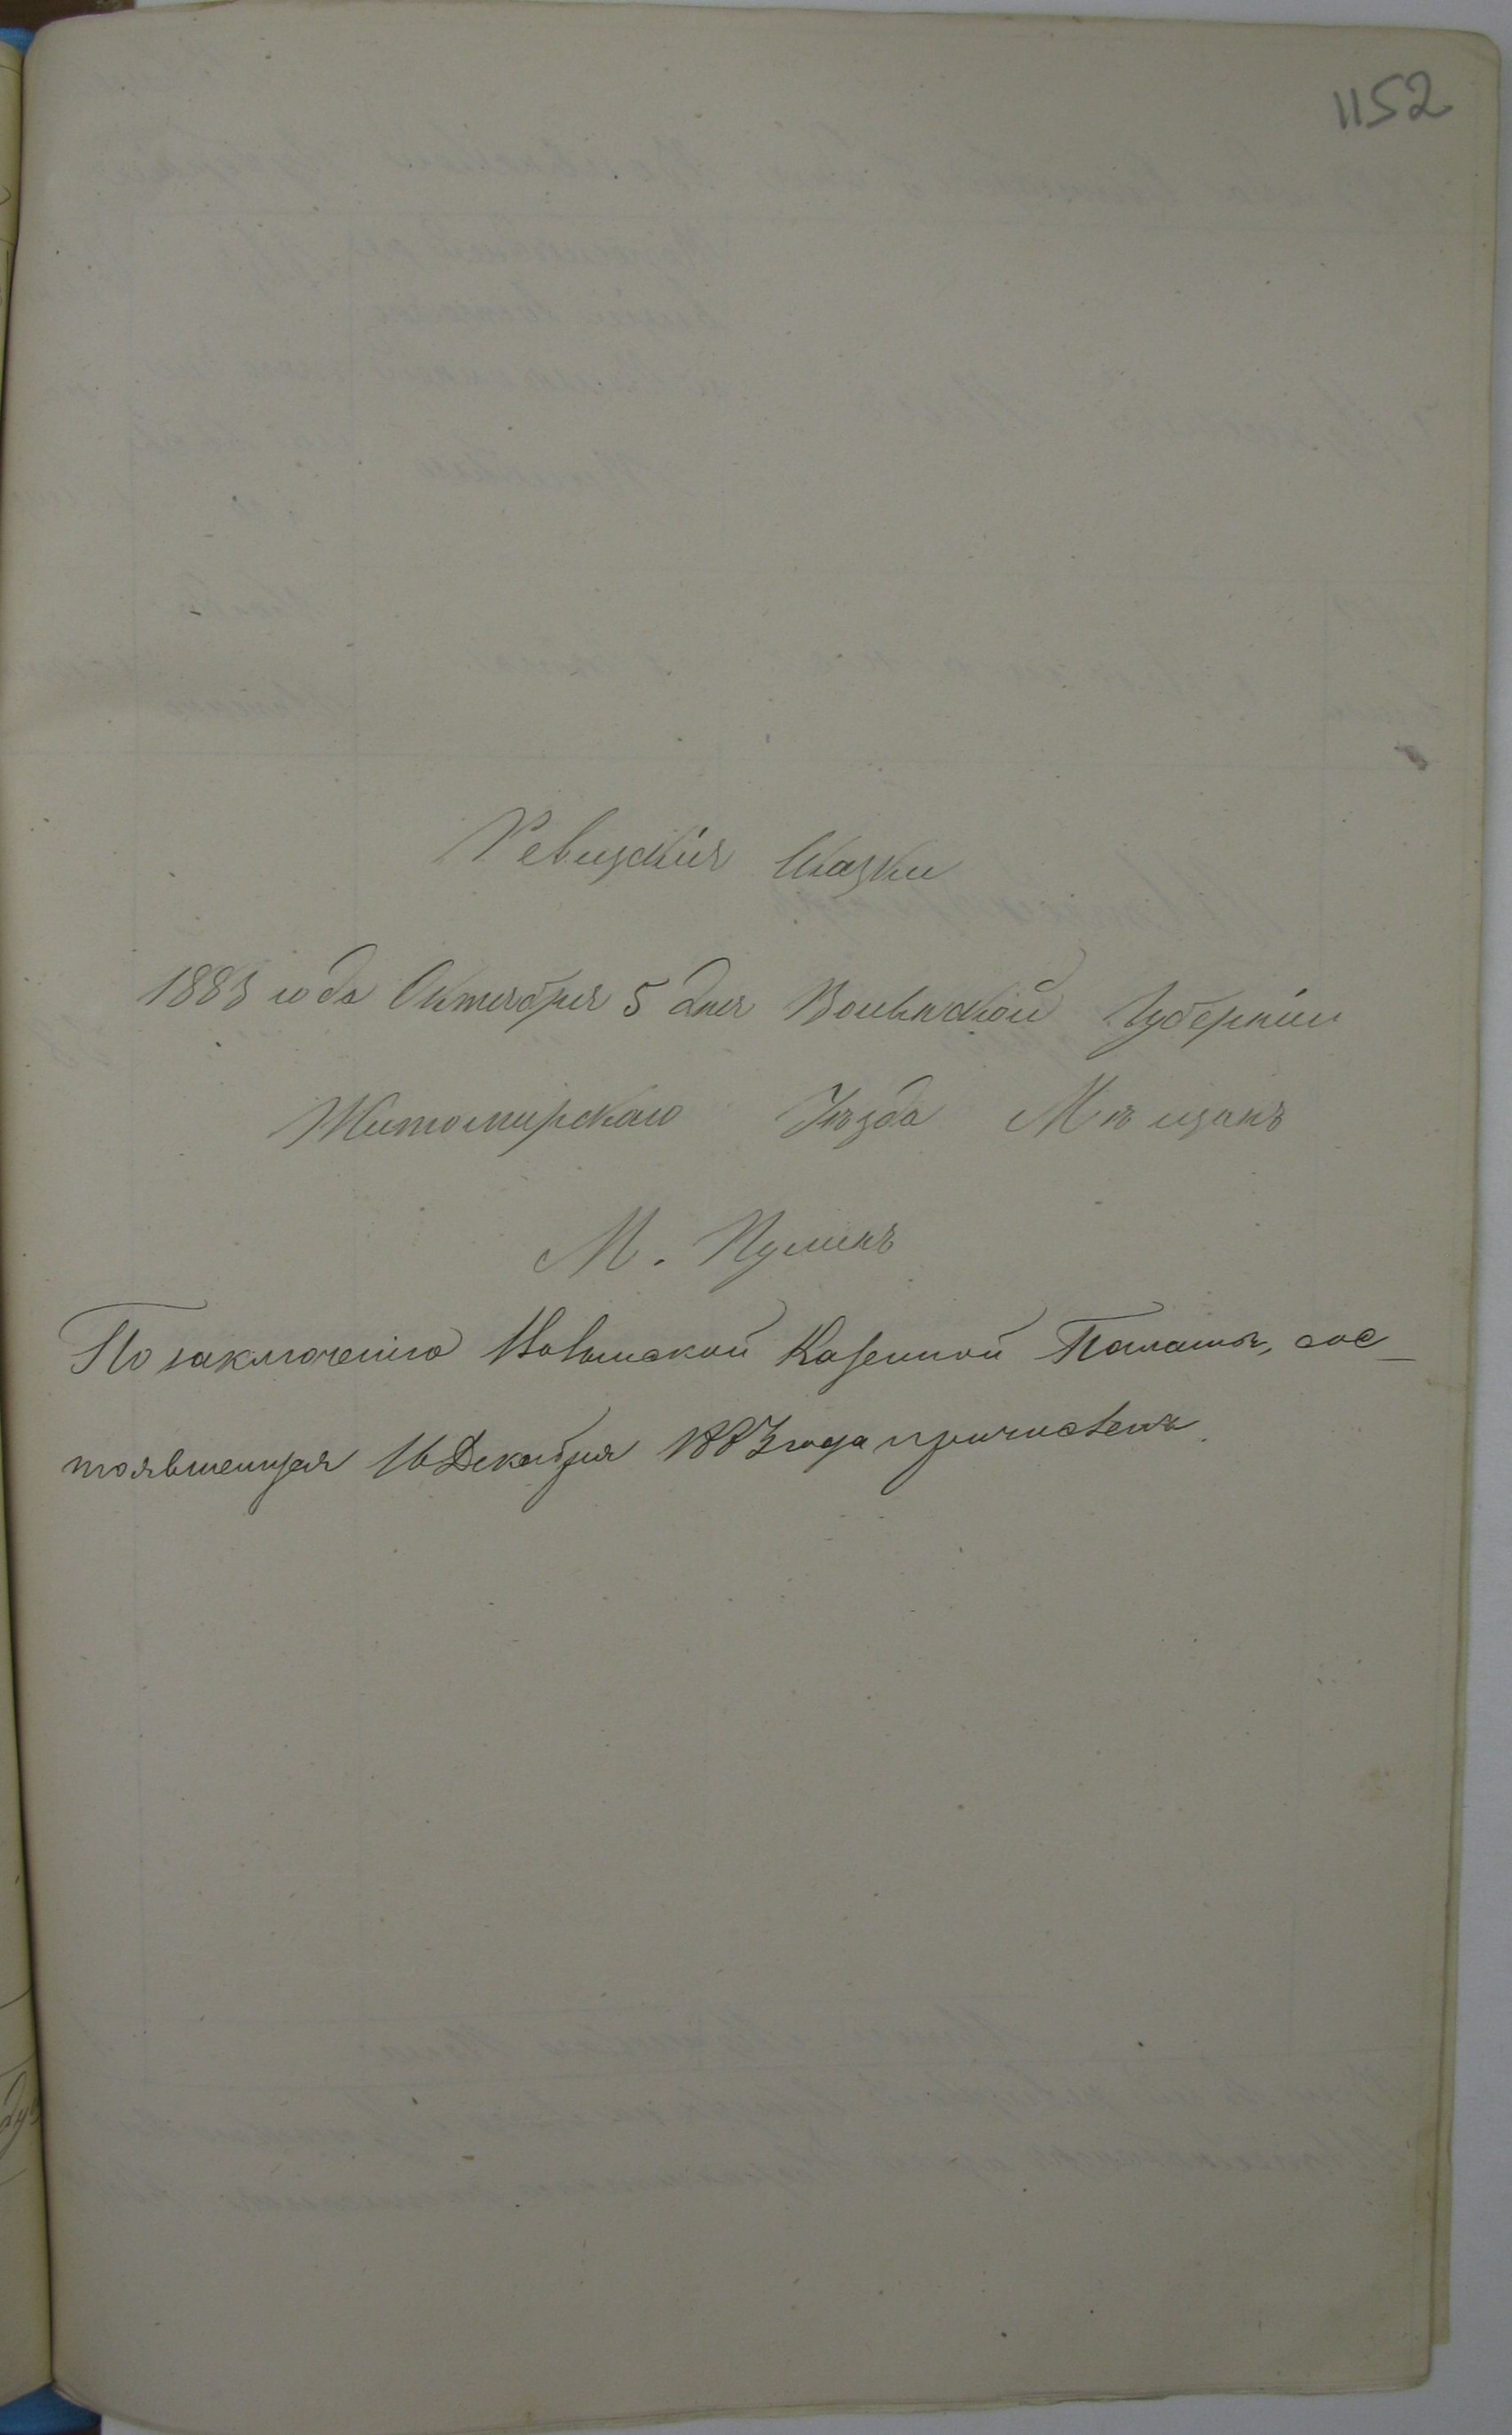 1152
Ревизскія Сказки
1883 года Октября 5 дня Волынской Губерніи
Житомирскаго Уѣзда Мѣщанъ
М. Пулинъ
По заключенію Волынской Казенной Палаты, сос-
тоявшемуся 16 Декабря 1883 года причисленъ.